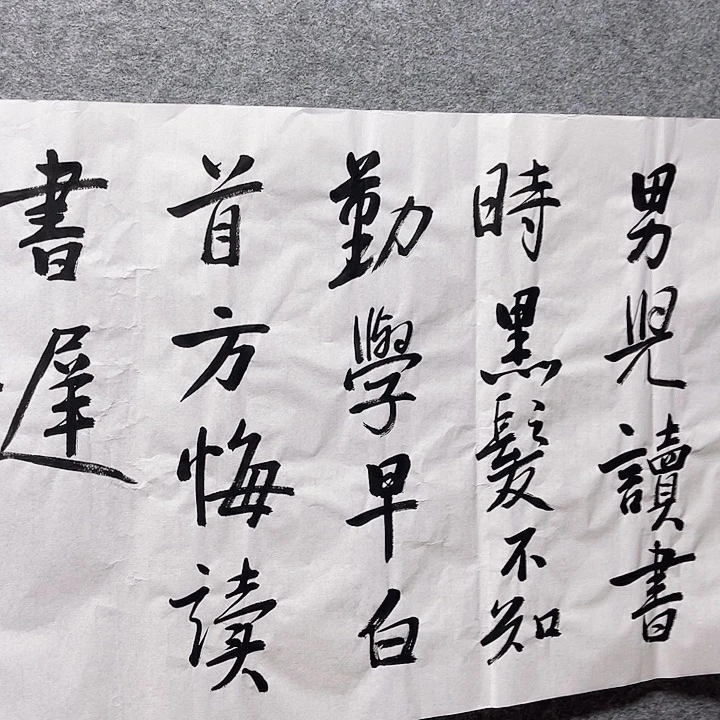 男児讀書
時黑髮不知
勤學早白
首方悔读
書遲